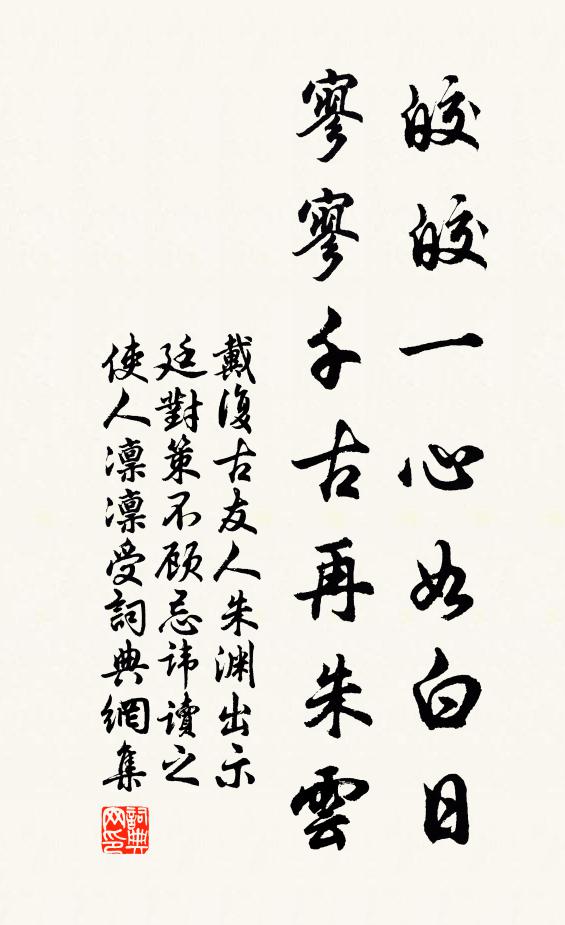 皎皎一心如白日
寥寥千古再朱雲
戴復古友人朱渊出示
廷對策不顾忌讳讀之
使人凛凛受詞典網集
詞典网印